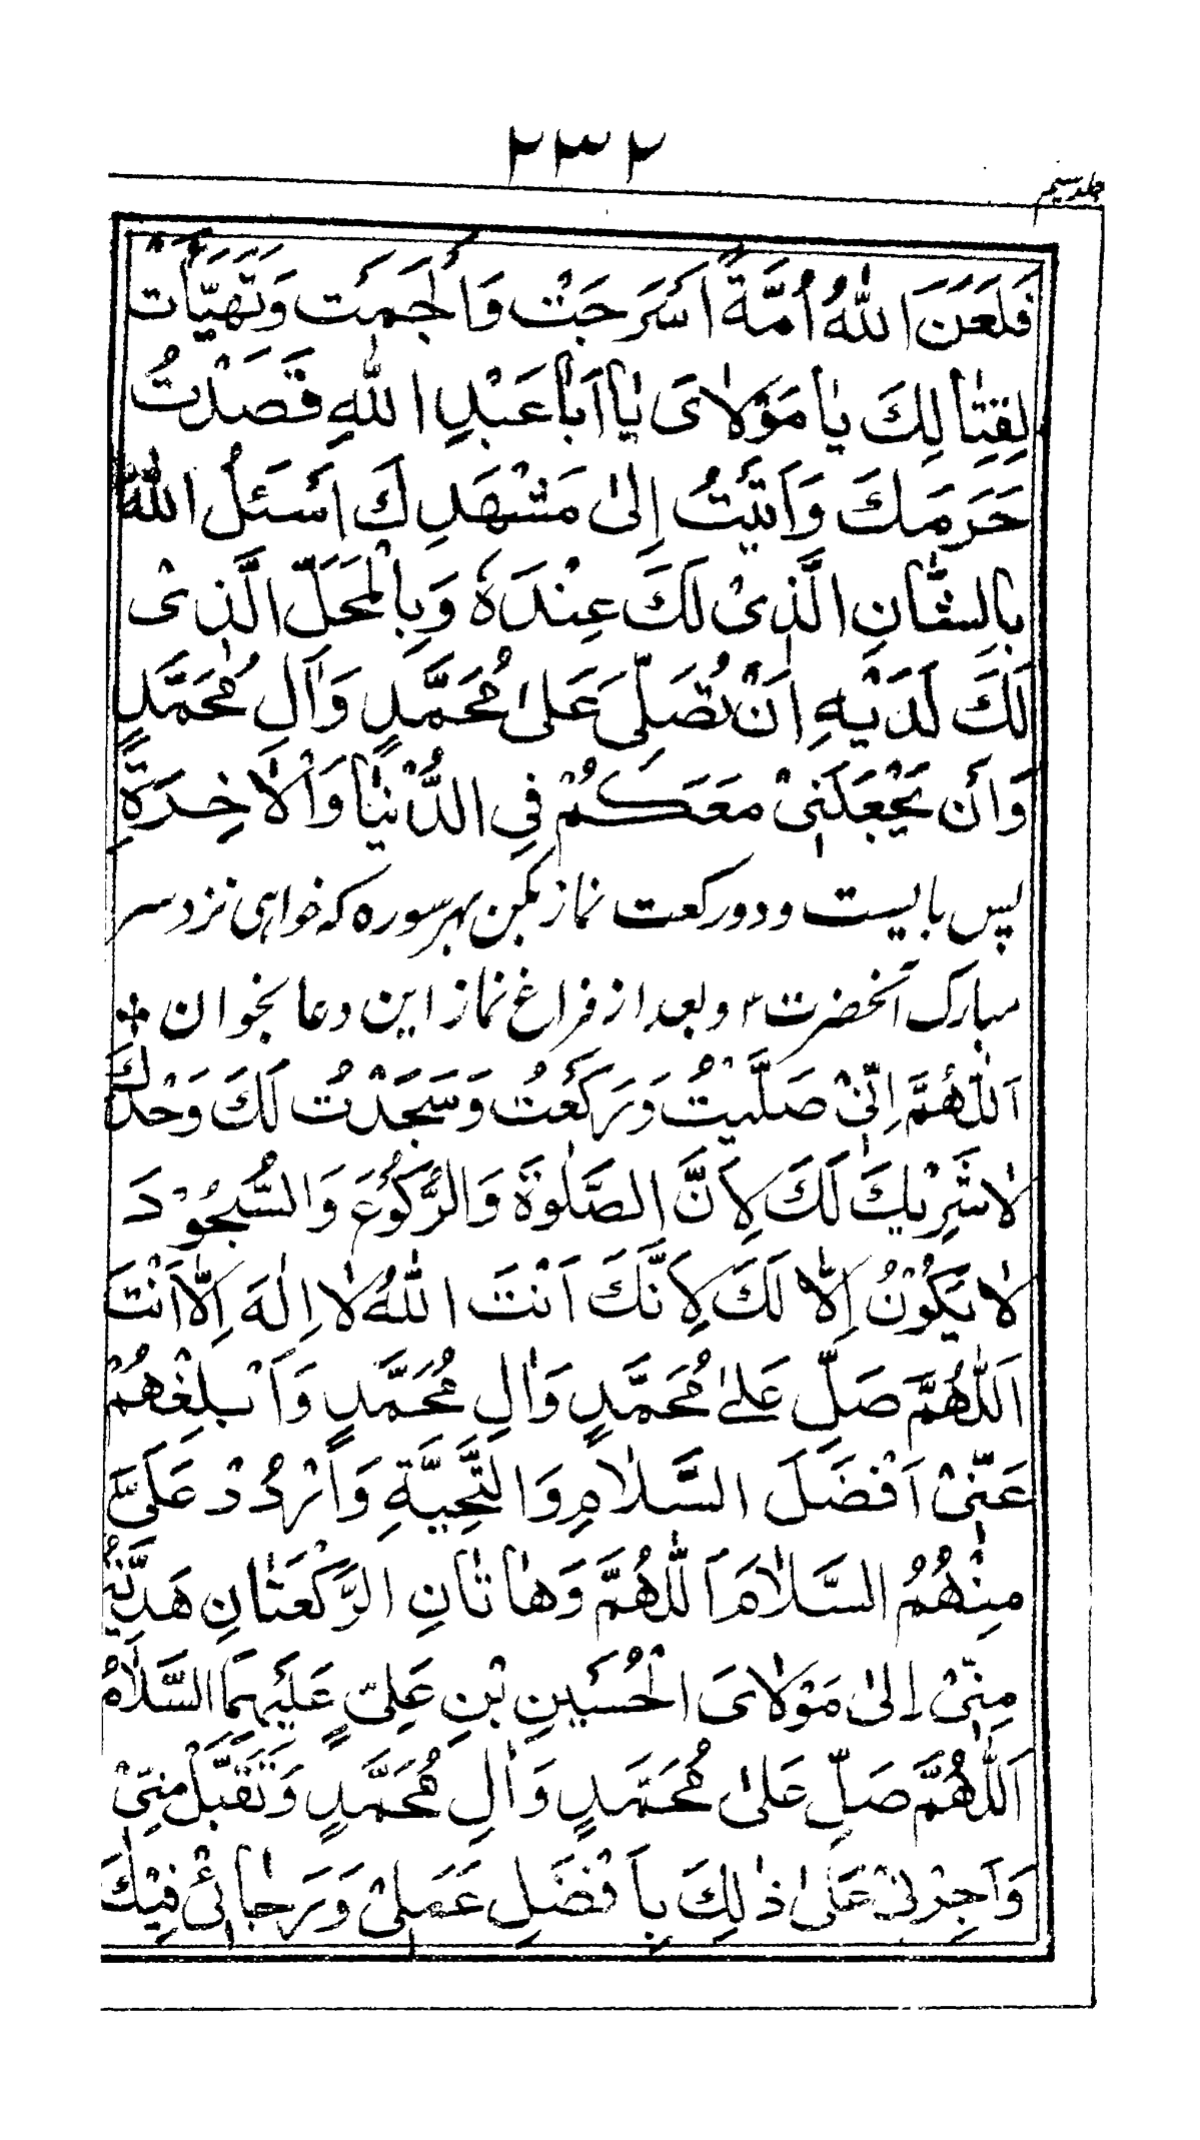 ۲۳۲
جلد سیم
فَلَعَنَ اللّٰهُ اُمَّةً اَسْرَجَتْ وَاَلْجَمَتْ وَتَهَيَّأَتْ
لِقِتٰالِكَ يٰا مَوْلاٰىَ يٰا اَبٰا عَبْدِ اللّٰهِ قَصَدْتُ
حَرَمَكَ وَاَتَيْتُ اِلىٰ مَشْهَدِكَ اَسْئَلُ اللّٰهَ
بِالشَّانِ الَّذِىْ لَكَ عِنْدَهُ وَبِالْمَحَلِّ الَّذِىْ
لَكَ لَدَيْهِ اَنْ تُصَلِّىَ عَلىٰ مُحَمَّدٍ وَاٰلِ مُحَمَّدٍ
وَاَنْ يَجْعَلَنِىْ مَعَكُمْ فِى الدُّنْيٰا وَاْلاٰخِرَةِ
پس بایست و دو رکعت نماز بکن بهر سوره که خواهی نزد سر
مبارک آنحضرت ۳ و بعد از فراغ نماز این دعا بخوان
اَللّٰهُمَّ اِنِّىْ صَلَّيْتُ وَرَكَعْتُ وَسَجَدْتُ لَكَ وَحْدَكَ
لاٰ شَرِيْكَ لَكَ لِاَنَّ الصَّلٰوةَ وَالرُّكُوْعَ وَالسُّجُوْدَ
لاٰ يَكُوْنُ اِلاّٰ لَكَ لِاَنَّكَ اَنْتَ اللّٰهُ لاٰ اِلٰهَ اِلاّٰ اَنْتَ
اَللّٰهُمَّ صَلِّ عَلىٰ مُحَمَّدٍ وَاٰلِ مُحَمَّدٍ وَاَبْلِغْهُمْ
عَنِّىْ اَفْضَلَ السَّلاٰمِ وَالتَّحِيَّةِ وَارْدُدْ عَلَىَّ
مِنْهُمُ السَّلاٰمَ اَللّٰهُمَّ وَهٰاتٰانِ الرَّكْعَتٰانِ هَدِيَّةٌ
مِنِّىْ اِلىٰ مَوْلاٰىَ الْحُسَيْنِ بْنِ عَلِىٍّ عَلَيْهِمَا السَّلاٰمُ
اَللّٰهُمَّ صَلِّ عَلىٰ مُحَمَّدٍ وَاٰلِ مُحَمَّدٍ وَتَقَبَّلْ مِنِّىْ
وَاَجِرْنِىْ عَلىٰ ذٰلِكَ بِاَفْضَلِ عَمَلِىْ وَرَجٰائِىْ فِيْكَ